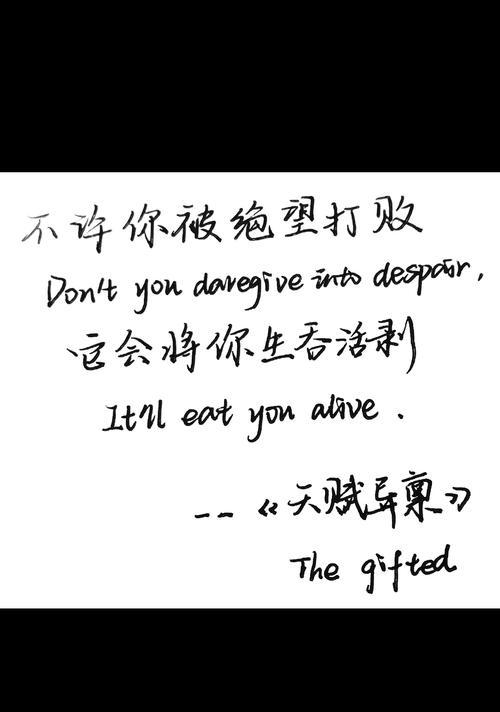 不许你被绝望打败
Don't you daregive into despair,
它会将你生吞活剥
It'll eat you alive.
--《天赋异禀》
The gifted